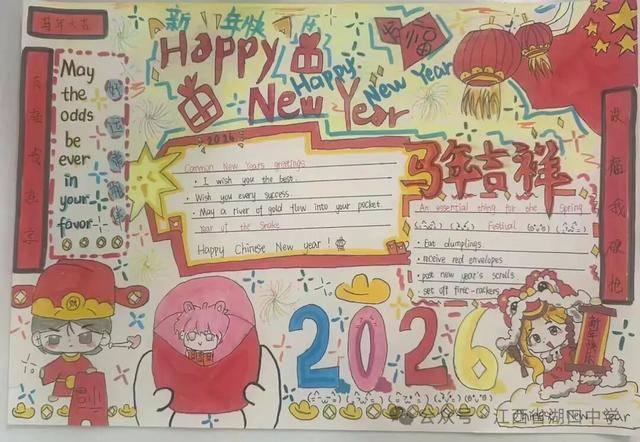 马年大吉
新年快乐
Happy
New Year
Happy
New Year
福
May
the
odds
be
ever
in
your
favor
好运常相伴
2026
Common New Years greetings
• I wish you the best.
• Wish you every success.
• May a river of gold flow into your pocket.
Year of the Snake
Happy Chinese New year!
马年吉祥
An essential thing for the Spring
Festival
• Eat dumplings.
• receive red envelopes
• post new year's scrolls
• set off fire-rockers
2026
新年快乐
New Year
公众号 江西省湖口中学